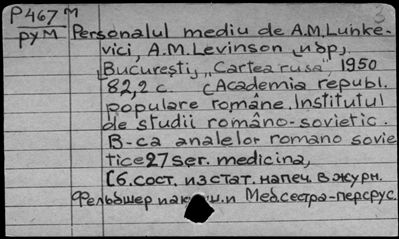 3
P467м Personalul mediu de A.M. Lunke-
рум vici, A.M. Levinson и др,
București, „Cartea rusa”, 1950
82,2 c. (Academia republ.
populare române. Institutul
de studii româno-sovietic.
B-ca analelor romano sovie
tice 27 ser. medicina,
Сб. сост. из стат. напеч. в журн.
Фельдшер и Медсестра-персрус.